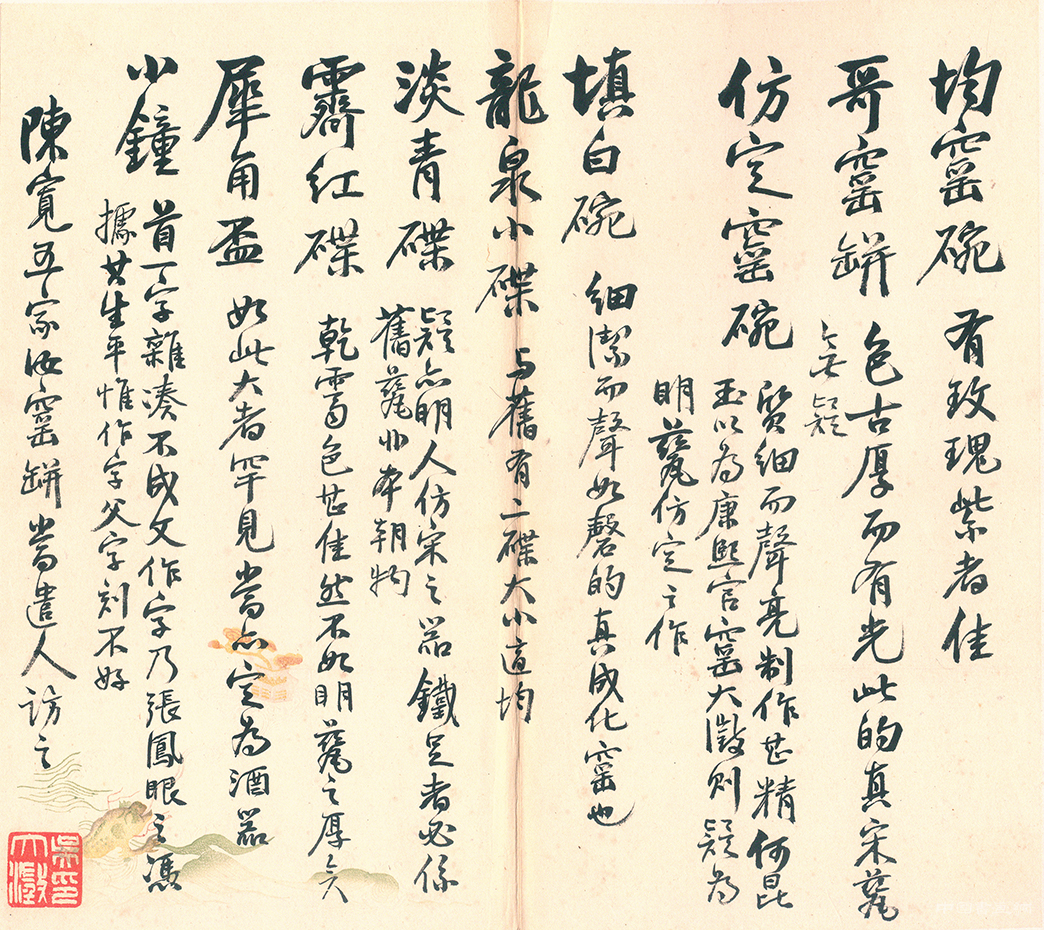 均窰碗 有玫瑰紫者佳
哥窰缾 色古厚而有光此的真宋甆
無疑
仿定窰碗 質細而聲亮制作甚精何昆
玉以為康熙官窰大澂則疑為
明甆仿定之作
填白碗 細潔而聲如磬的真成化窰也
龍泉小碟 与舊有二碟大小適均
淡青碟 疑亦明人仿宋之器鐵足者必係
舊甆非本朝物
霽紅碟 乾霽色甚佳然不如明甆之厚矣
犀角盃 如此大者罕見當亦定為酒器
小鐘 首一字雜湊不成文作字乃張鳳眼之憑
據其生平惟作字父字刻不好
陳寬五家汝窰缾當遣人訪之
吳印大澂